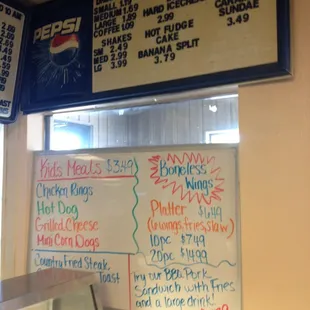 TO 10 AM
PEPSI
SMALL
MEDIUM
LARGE 1.89
COFFEE
SHAKES
SM 2.49
MED 2.99
LG 3.99
HARD ICECREAM
2.99
HOT FUDGE
CAKE
BANANA SPLIT
3.79
SUNDAE
3.49
TOAST
Kids Meals $3.49
Chicken Rings
Hot Dog
Grilled Cheese
Mini Corn Dogs
Country Fried Steak
Toast
Boneless
Wings
Platter $6.49
(6 wings, fries, slaw)
10pc $7.49
20pc $14.99
try our BBQ Pork
Sandwich with Fries
and a large drink!